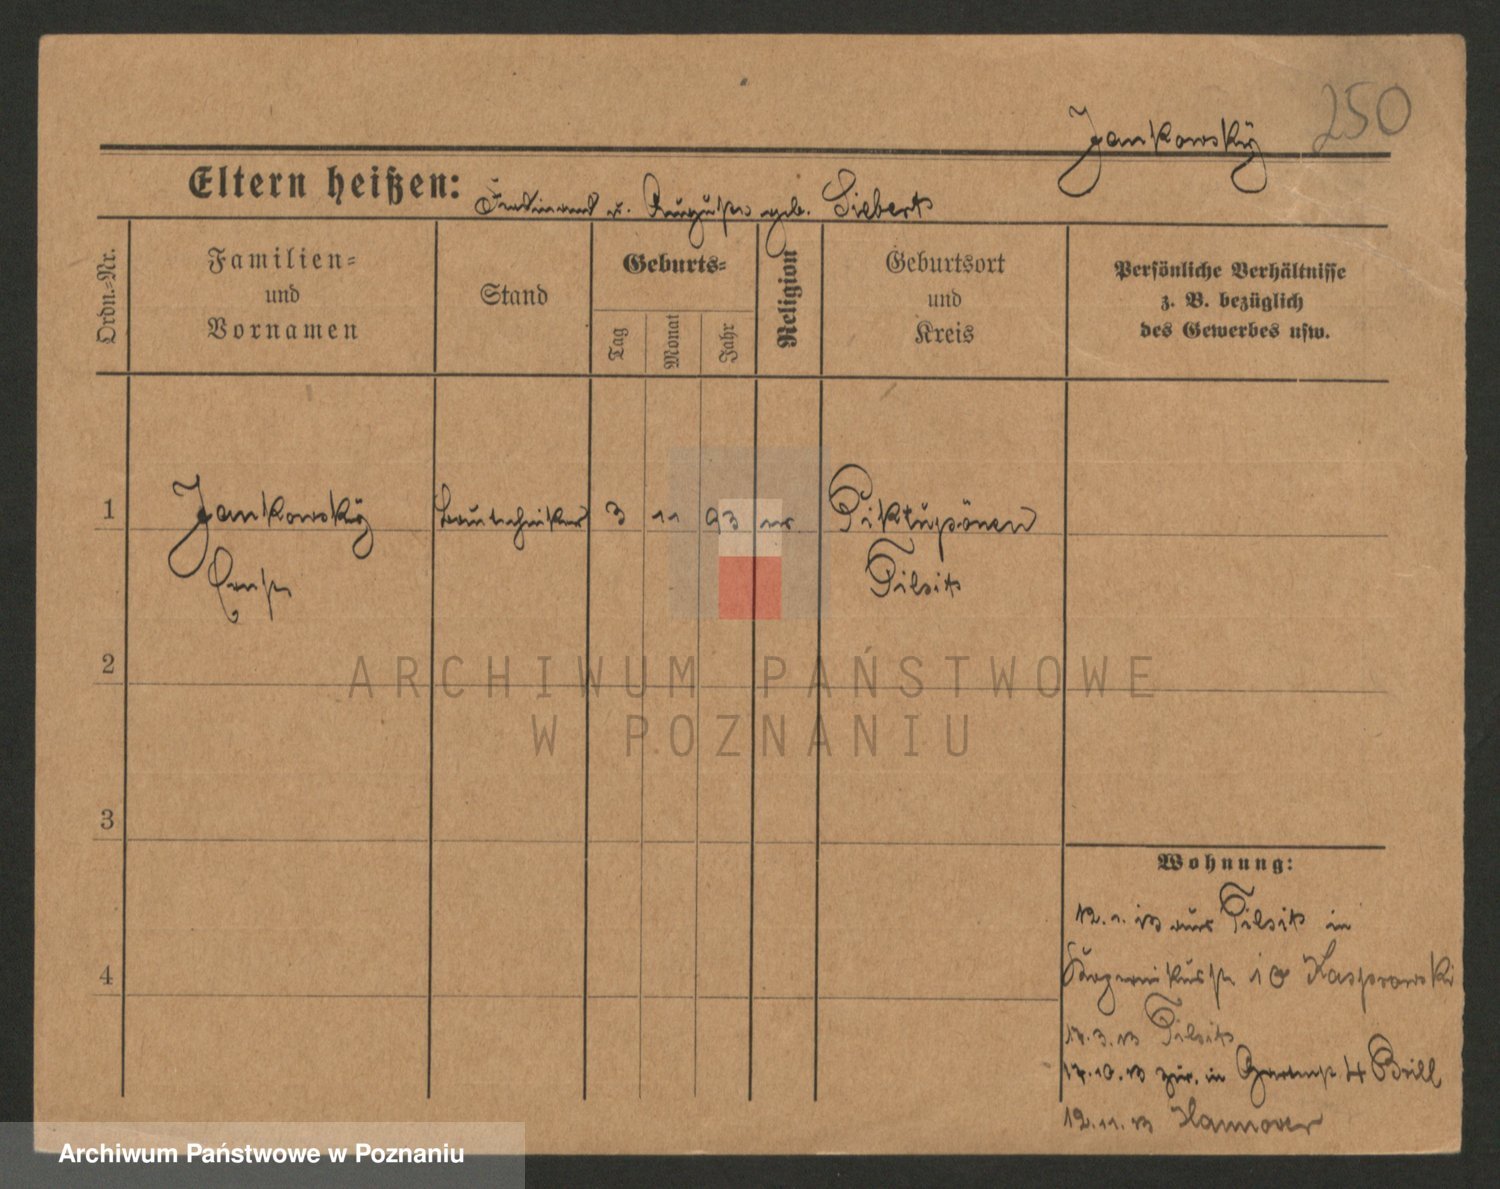 250
Jankowský
Eltern heißen: Ferdinand u. Auguste geb. Siebert
Ordn.-Nr.
Familien-
und
Vornamen
Stand
Geburts-
Tag
Monat
Jahr
Religion
Geburtsort
und
Kreis
Persönliche Verhältnisse
z. B. bezüglich
des Gewerbes usw.
1 Jankowský Bautechniker 3 11 93 ev Piktupönen
Ernst Tilsit
2
ARCHIWUM PAŃSTWOWE
W POZNANIU
3
4
Wohnung:
12.1.13 aus Tilsit in
10 Kasprowski
17.3.13 Tilsit
17.10.13 zur. in Gartenstr 4 Brill
12.11.13 Hannover
Archiwum Państwowe w Poznaniu